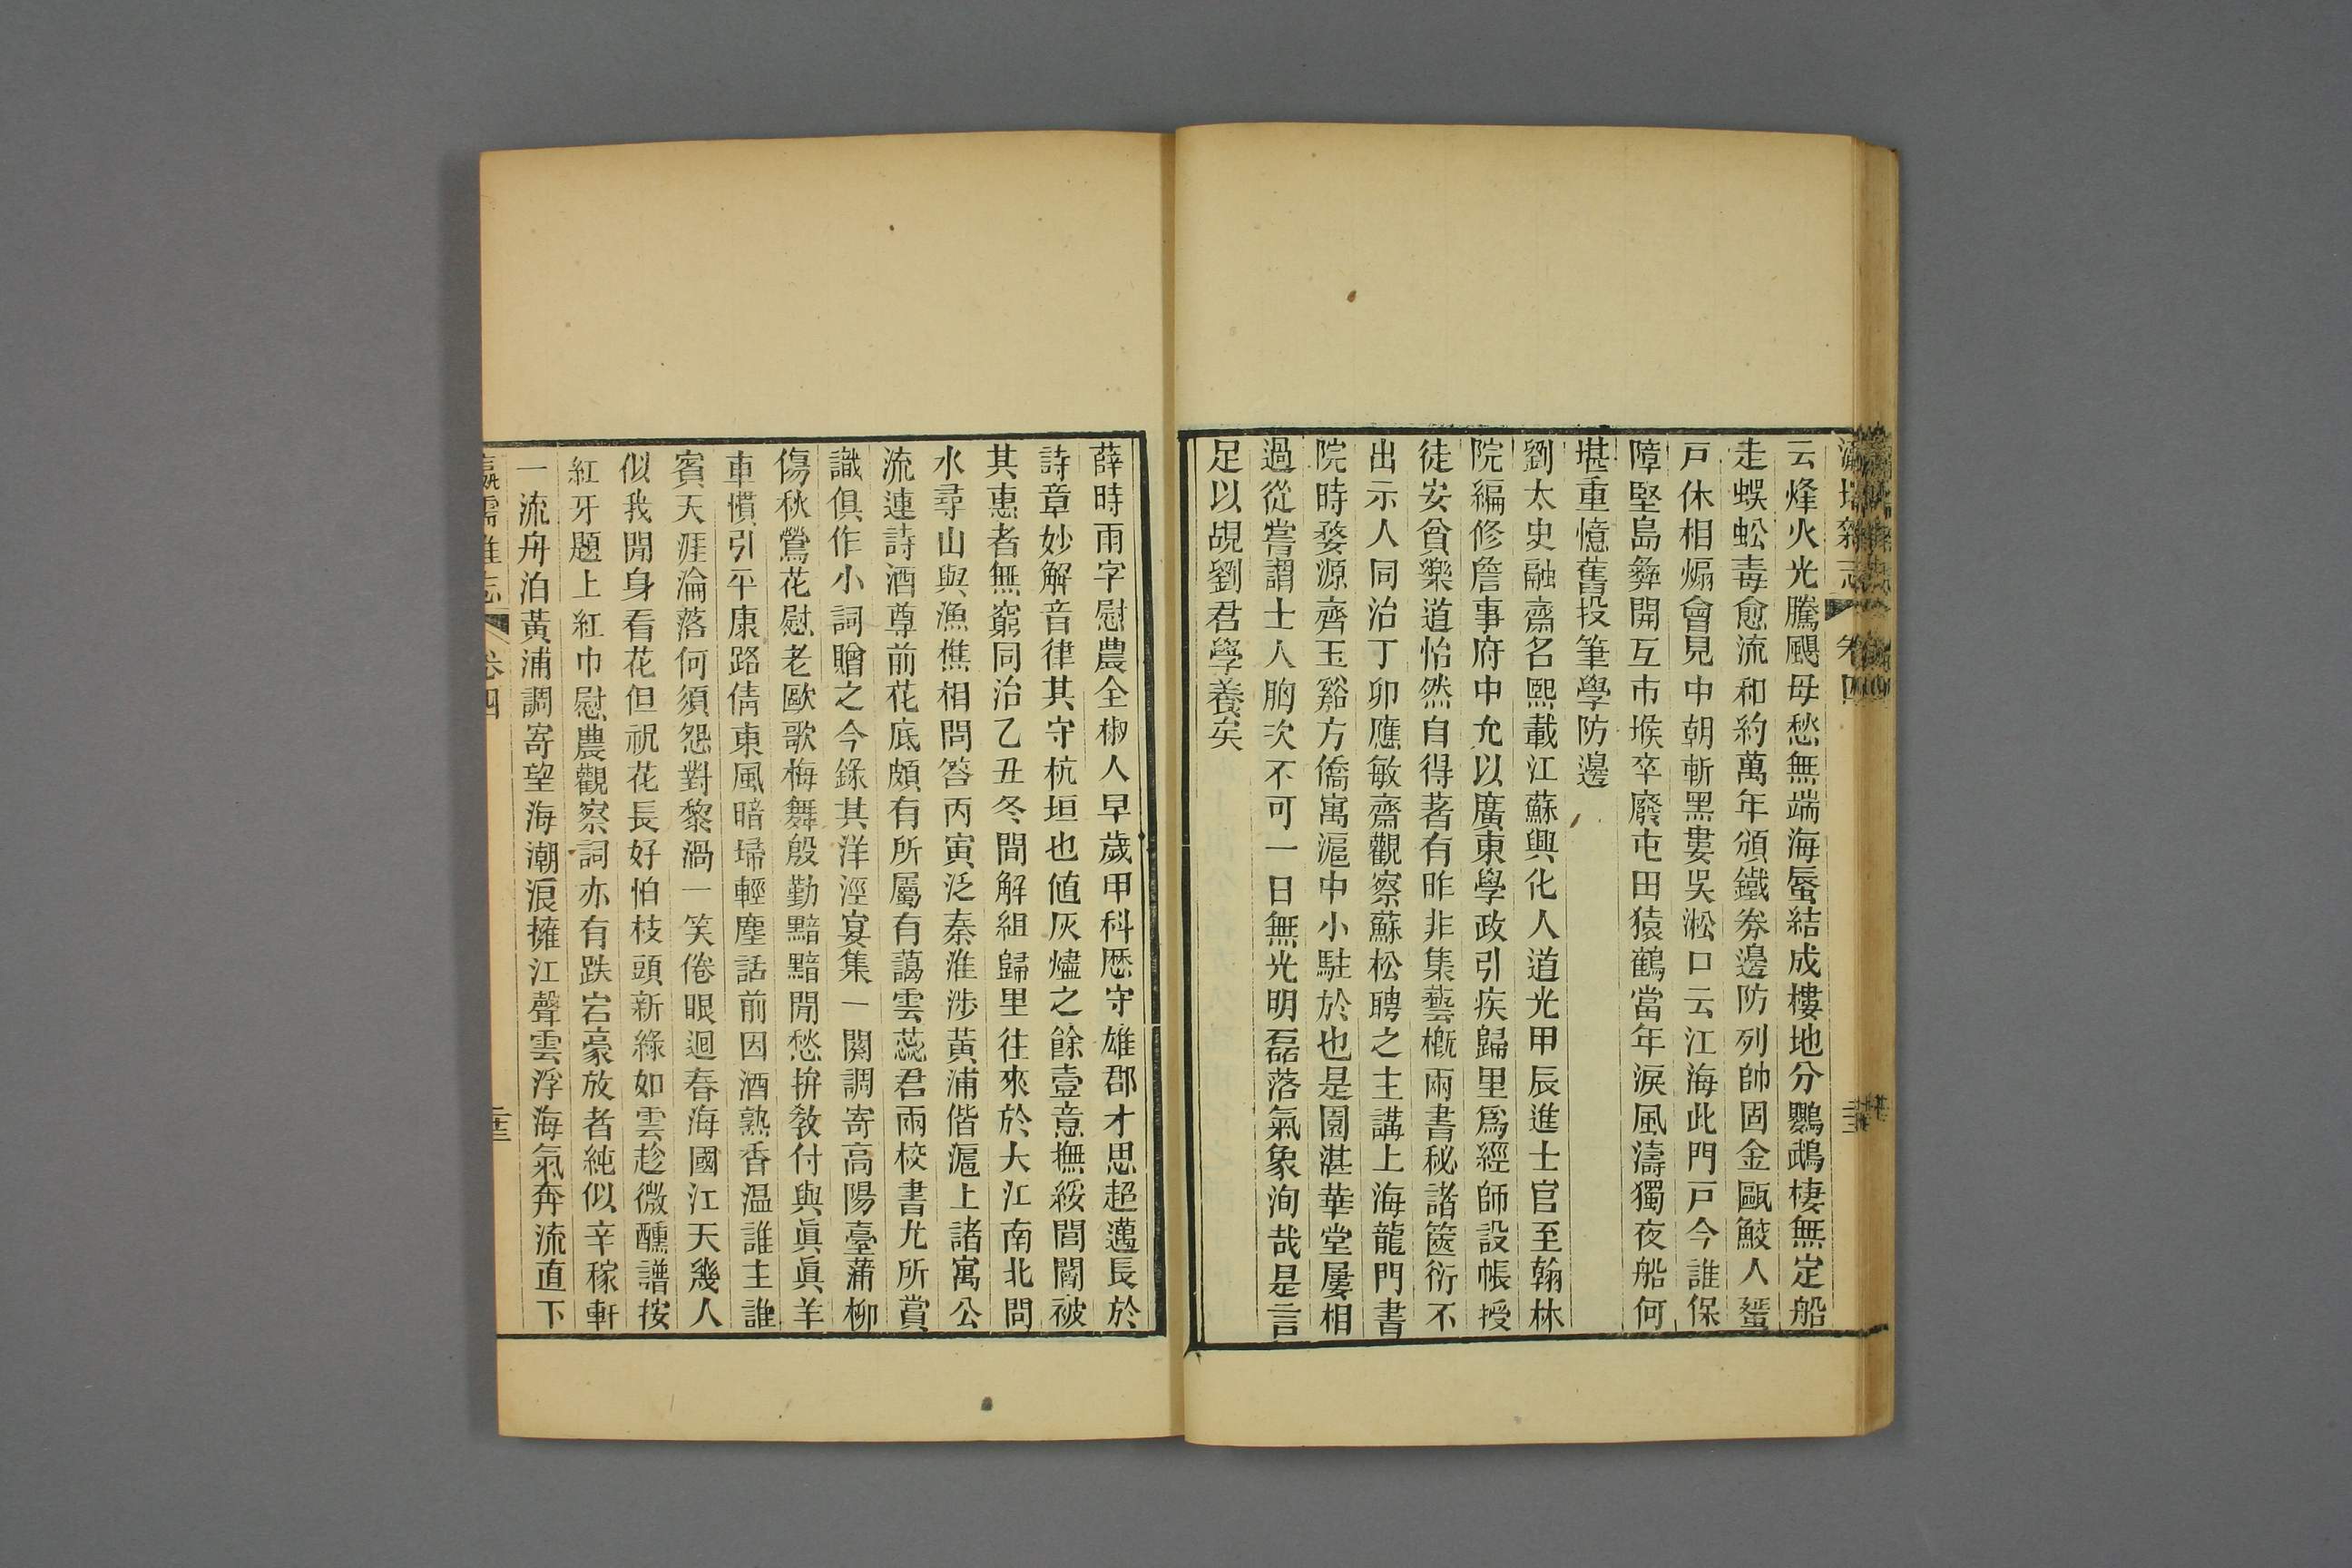 瀛壖雜志 卷四
云烽火光騰颶母愁無端海蜃結成樓地分鸚鵡棲無定船
走蜈蚣毒愈流和約萬年頒鐵券邊防列帥固金甌鮫人蜑
戸休相煽會見中朝斬黑婁吳淞口云江海此門戸今誰保
障堅島彝開互市堠卒廢屯田猿鶴當年淚風濤獨夜船何
堪重憶舊投筆學防邊
劉太史融齋名熙載江蘇興化人道光甲辰進士官至翰林
院編修詹事府中允以廣東學政引疾歸里爲經師設帳授
徒安貧樂道怡然自得著有昨非集藝概兩書秘諸篋衍不
出示人同治丁卯應敏齋觀察蘇松聘之主講上海龍門書
院時婺源齊玉谿方僑寓滬中小駐於也是園湛華堂屢相
過從嘗謂士人胸次不可一日無光明磊落氣象洵哉是言
足以覘劉君學養矣
薛時雨字慰農全椒人早歲甲科歷守雄郡才思超邁長於
詩章妙解音律其守杭垣也值灰燼之餘壹意撫綏閭閻被
其惠者無窮同治乙丑冬間解組歸里往來於大江南北問
水尋山與漁樵相問答丙寅泛秦淮涉黃浦偕滬上諸寓公
流連詩酒尊前花底頗有所屬有藹雲蕊君兩校書尤所賞
識俱作小詞贈之今錄其洋涇宴集一闋調寄高陽臺蒲柳
傷秋鶯花慰老歐歌梅舞殷勤黯黯閒愁拚敎付與眞眞羊
車慣引平康路倩東風暗埽輕塵話前因酒熟香温誰主誰
賓天涯淪落何須怨對黎渦一笑倦眼迴春海國江天幾人
似我閒身看花但祝花長好怕枝頭新綠如雲趁微醺譜按
紅牙題上紅巾慰農觀察詞亦有跌宕豪放者純似辛稼軒
一流舟泊黃浦調寄望海潮浪擁江聲雲浮海氣奔流直下
瀛壖雜志 卷四